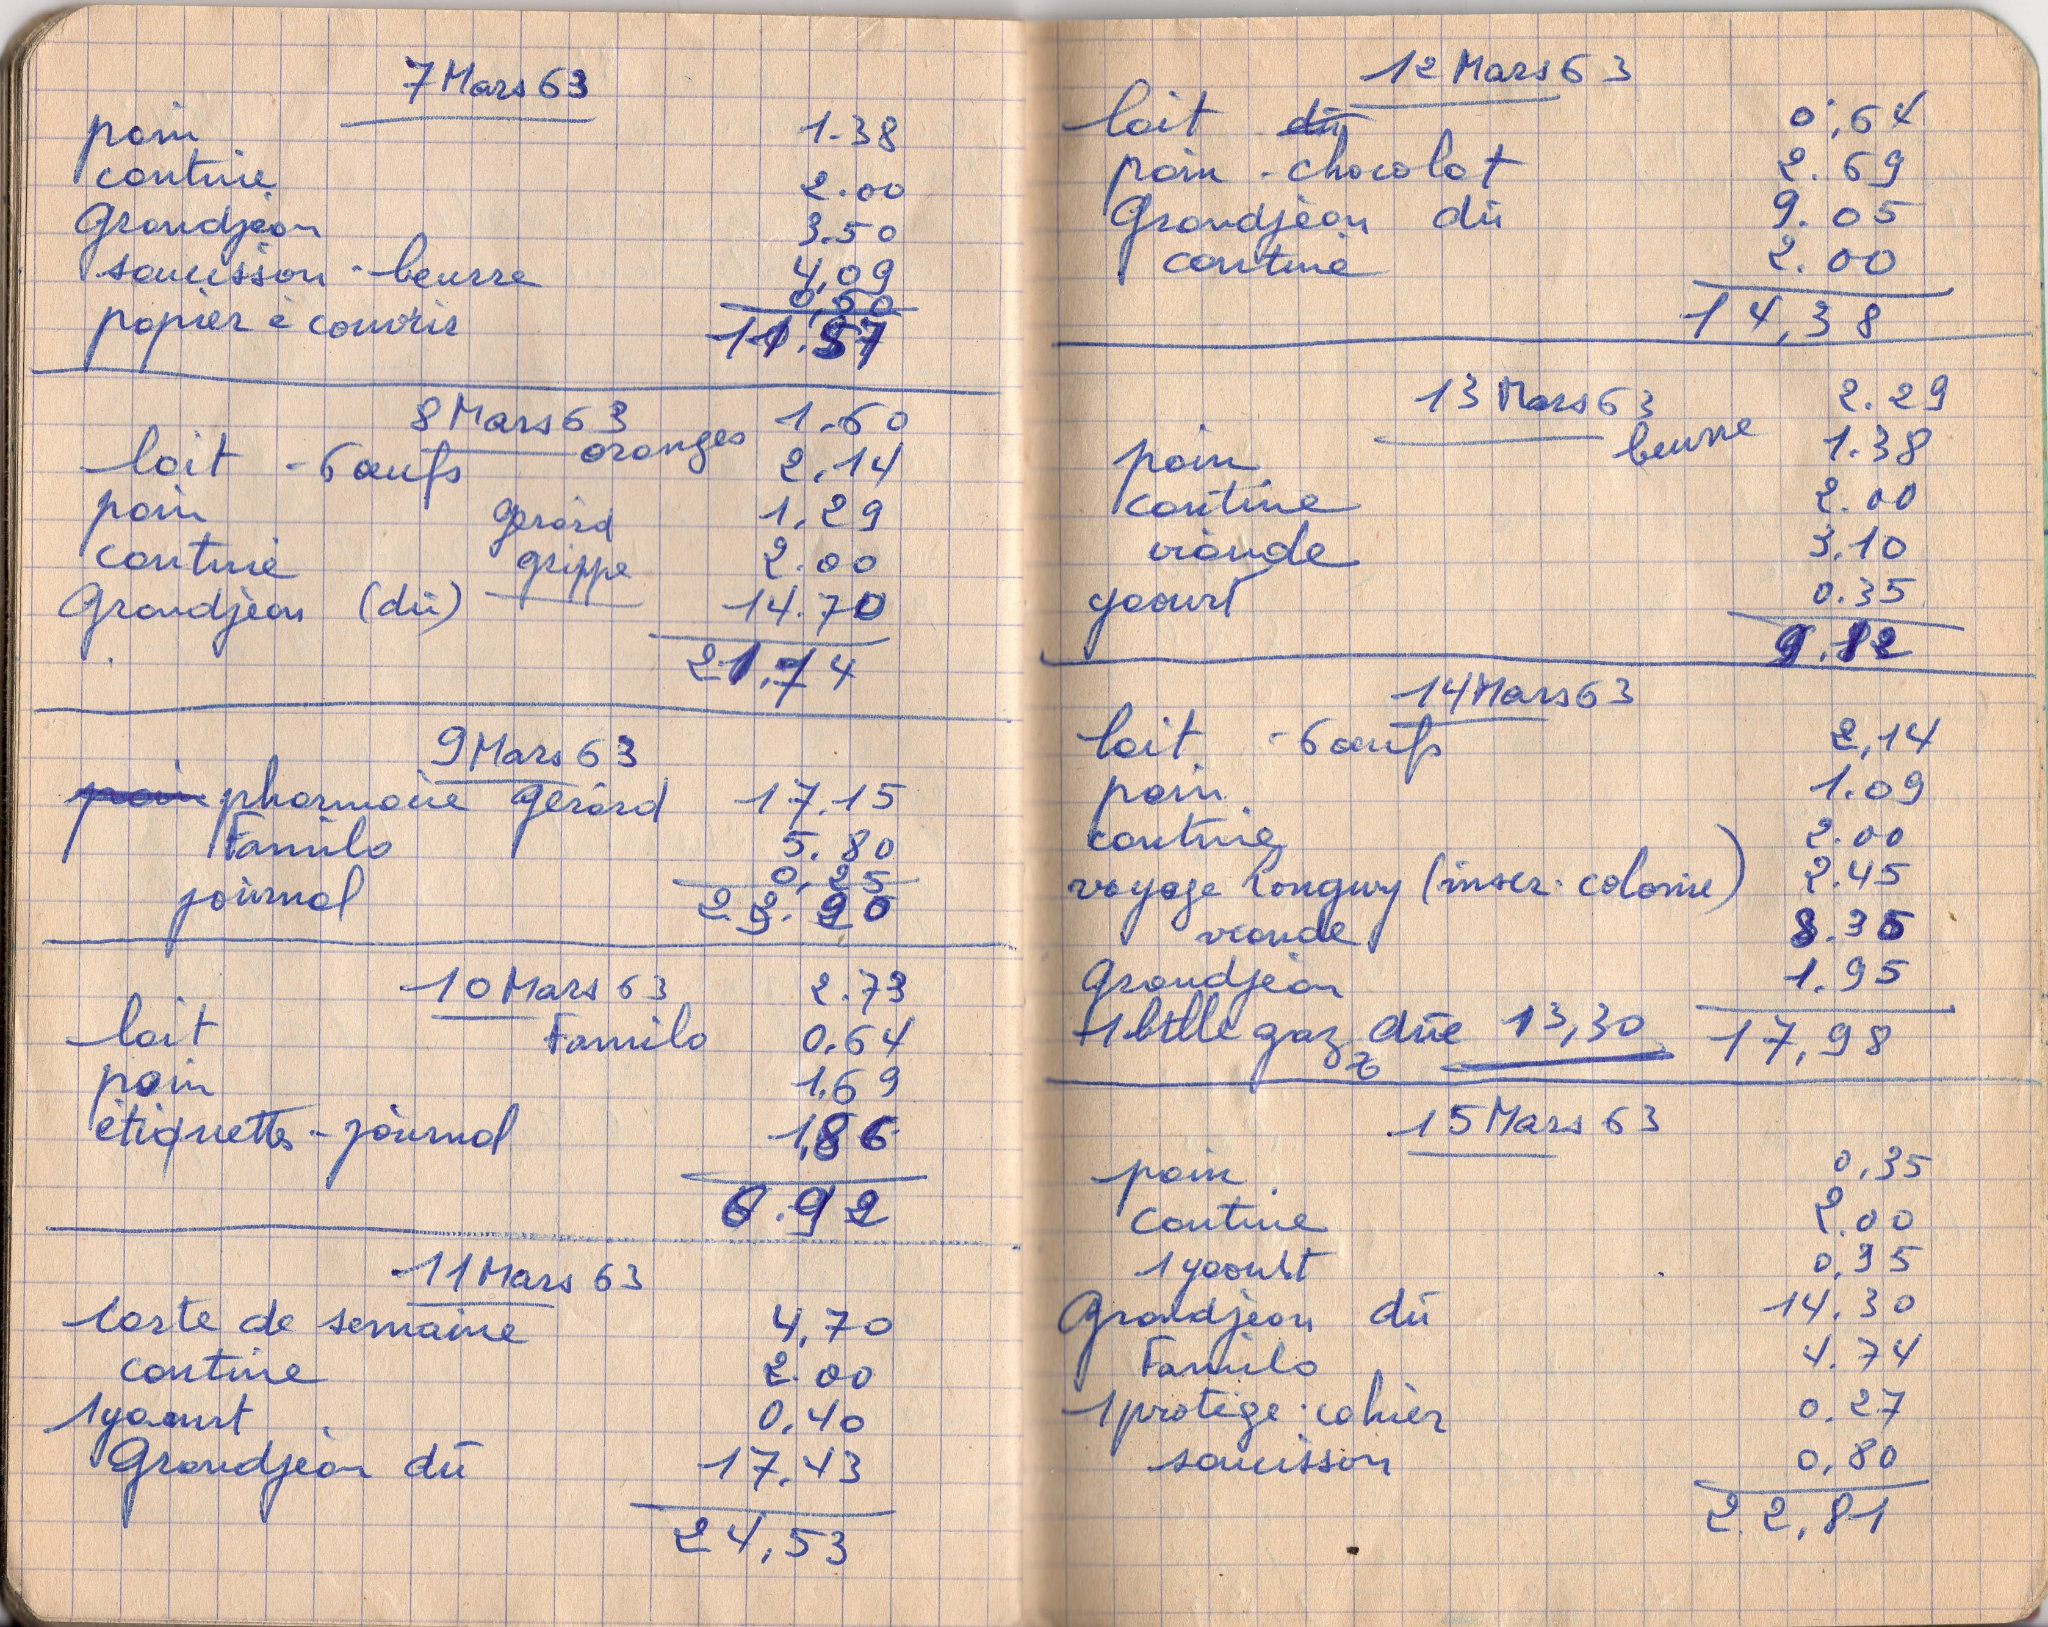 7 Mars 63
pain 1.38
cantine 2.00
Grandjean 3.50
saucisson - beurre 4,09
papier à couvrir 0,60
11.57
8 Mars 63 1.60
lait - 6 œufs oranges 2,14
pain Gérard 1.29
cantine grippe 2.00
Grandjean (dû) 14.70
21,74
9 Mars 63
pain pharmacie Gérard 17.15
Familo 5.80
journal 0,25
23.20
10 Mars 63 2.73
lait Familo 0.64
pain 1.69
étiquettes - journal 1,86
6.92
11 Mars 63
carte de semaine 4,70
cantine 2.00
1 yaourt 0,40
Grandjean dû 17.43
24,53
12 Mars 63
lait dû 0,64
pain - chocolat 2.69
Grandjean dû 9.05
cantine 2.00
14,38
13 Mars 63 2.29
pain beurre 1.38
cantine 2.00
viande 3.10
yaourt 0.35
9.12
14 Mars 63
lait - 6 œufs 2,14
pain 1.09
cantine 2.00
voyage Longwy (inscr. colonie) 2.45
viande 8.35
Grandjean 1.95
1 btlle gaz dûe 13,30 17,98
15 Mars 63
pain 0,35
cantine 2.00
1 yaourt 0,35
Grandjean dû 14.30
Familo 4.74
1 protège-cahier 0.27
saucisson 0,80
22,81